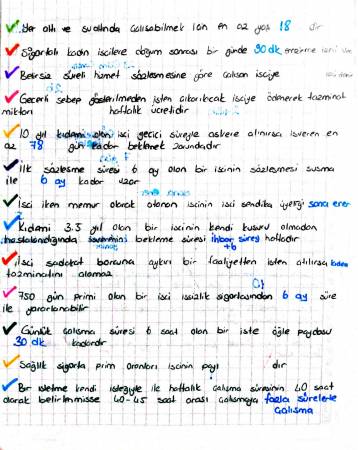 Yer altı ve su altında çalışabilmek için en az yaş 18 dir
Sigortalı kadın işçilere doğum sonrası bir günde 90 dk emzirme izni
Belirsiz süreli hizmet sözleşmesine göre çalışan işçiye
Geçerli sebep gösterilmeden işten çıkarılacak işçiye ödenerek tazminat
miktarı haftalık ücretidir
10 yıl kıdemi olan işçi geçici süreyle askere alınırsa işveren en
az 78 gün kadar beklemek zorundadır
İlk sözleşme süresi 6 ay olan bir işçinin sözleşmesi susma
ile 6 ay kadar uzar
İşçi iken memur olarak atanan işçinin işçi sendika üyeliği sona erer
Kıdemi 3.5 yıl olan bir işçinin kendi kusuru olmadan
hastalandığında bekleme süresi ihbar süresi haftadır
+6
İşçi sadakat borcuna aykırı bir faaliyetten işten atılırsa kıdem
tazminatını alamaz
750 gün primi olan bir işçi işsizlik sigortasından 6 ay süre
ile yararlanabilir
Günlük çalışma süresi 6 saat olan bir işte öğle paydosu
30 dk kadardır
Sağlık sigorta prim oranları işçinin payı dır
Bir işletme kendi isteğiyle ile haftalık çalışma süresinin 40 saat
olarak belirlenmişse 40-45 saat arası çalışmaya fazla sürelerle
çalışma